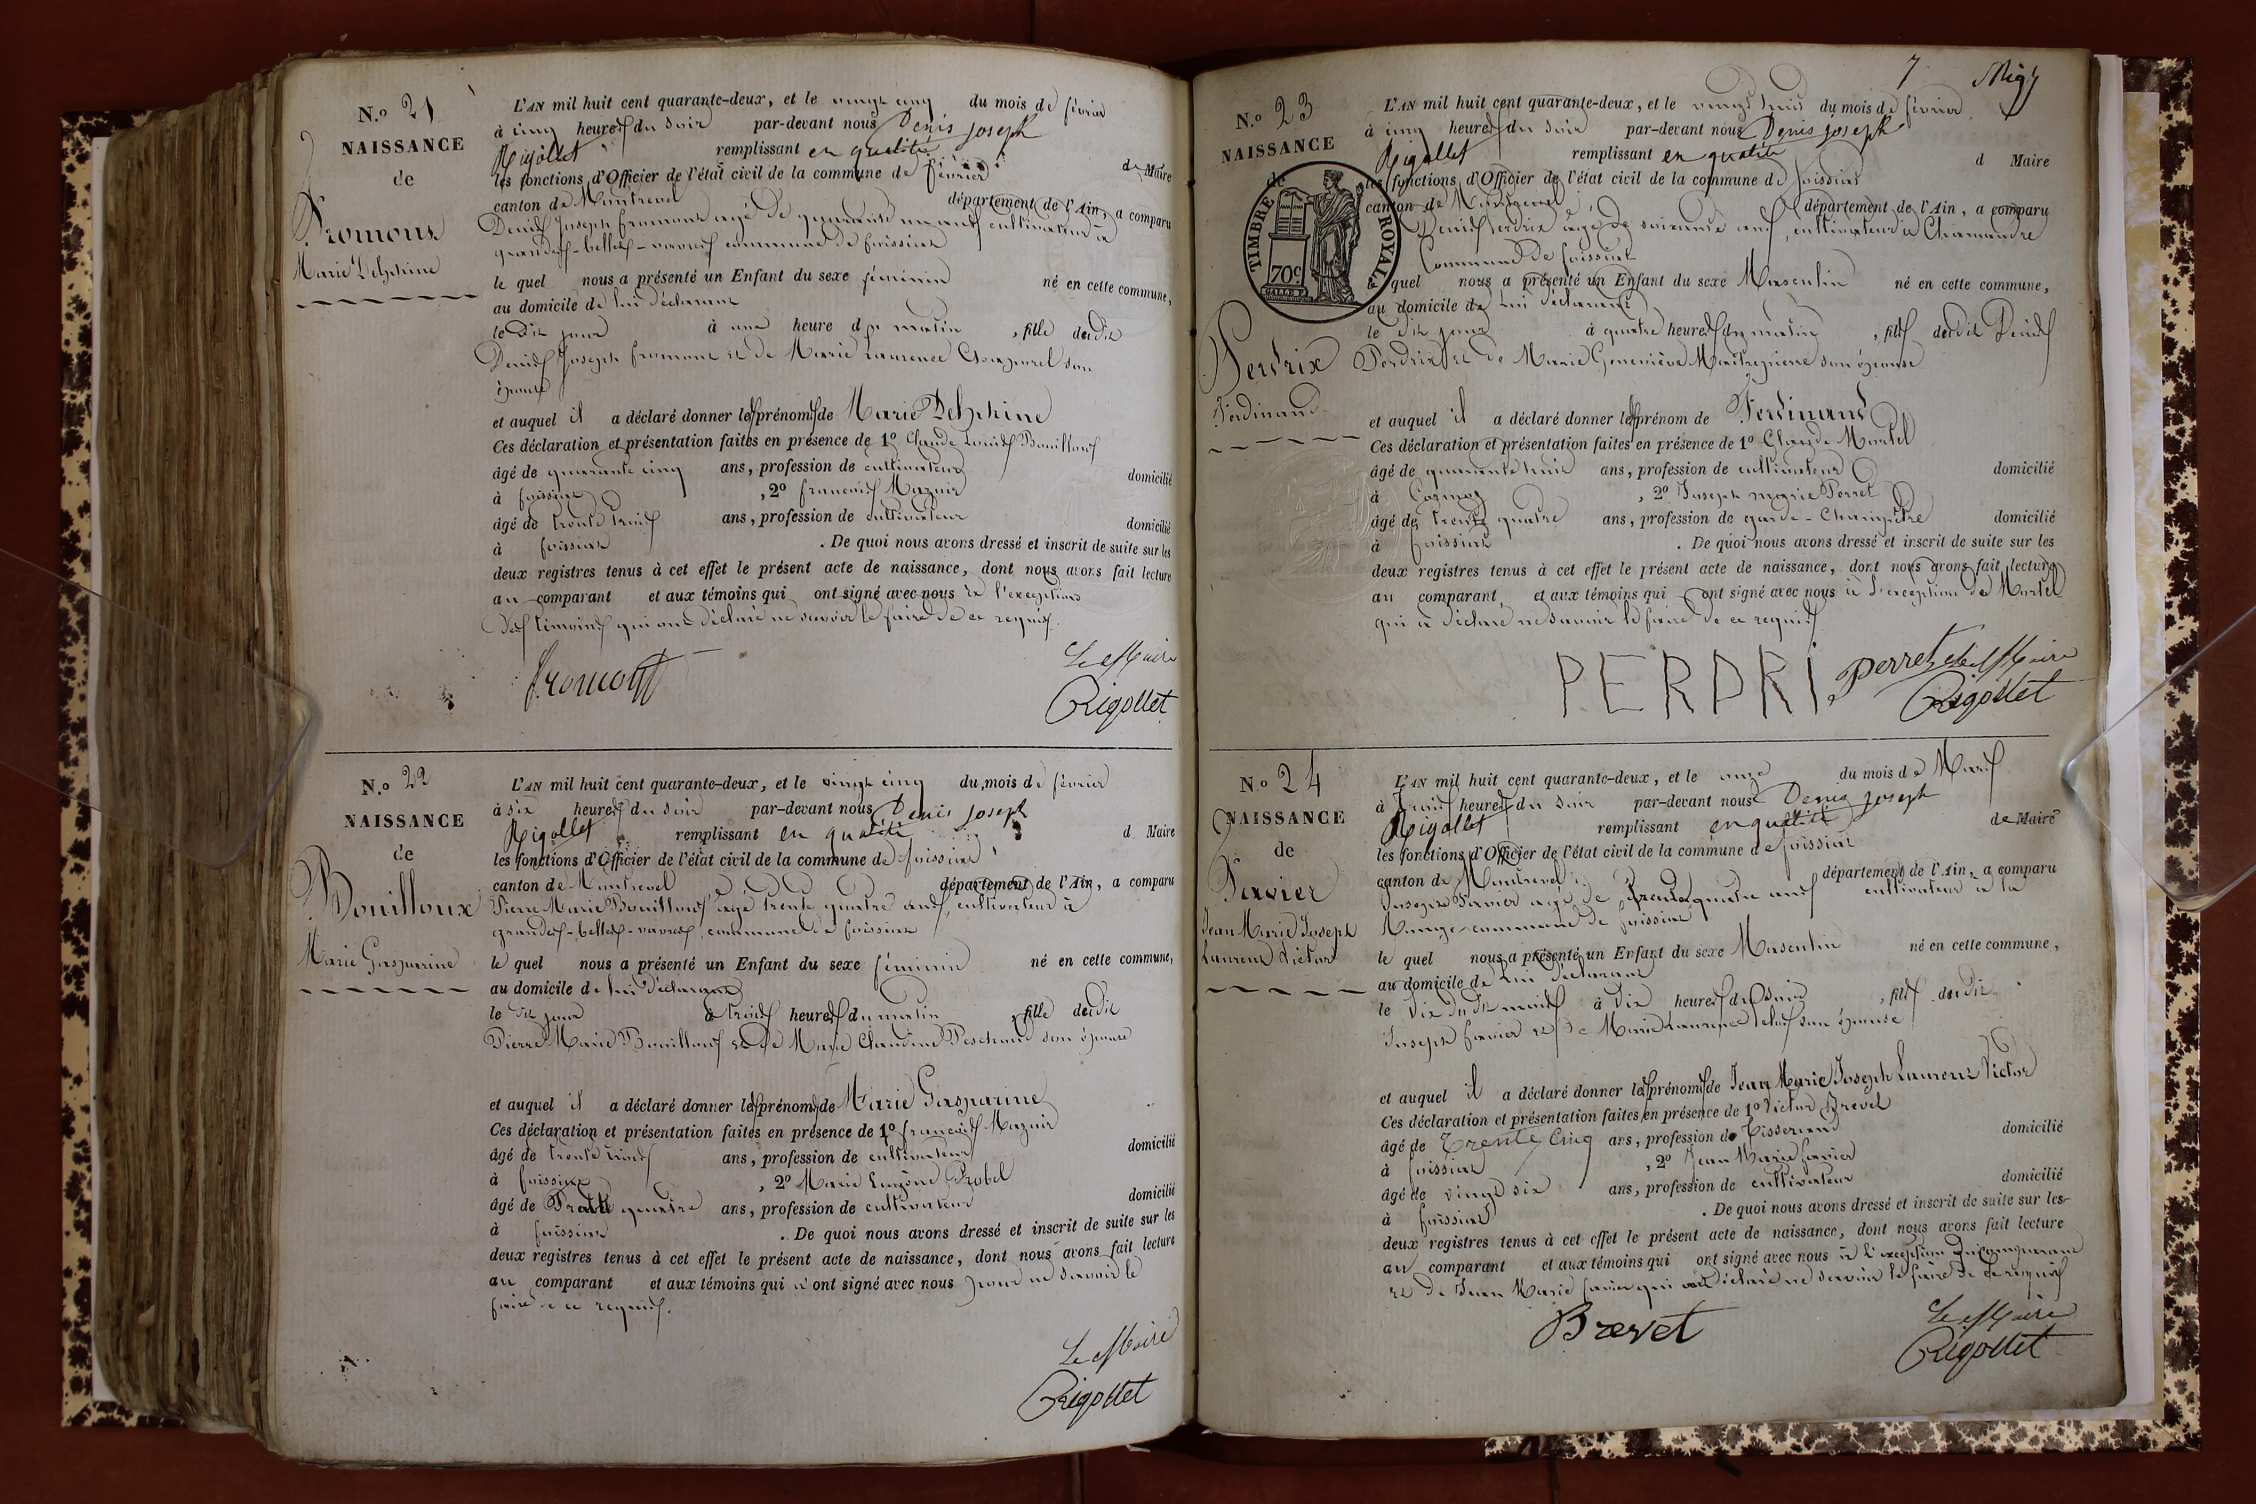 N.º 21
NAISSANCE
de
Fromont
Marie Delphine
L'AN mil huit cent quarante-deux, et le vingt cinq du mois de février
à cinq heures du soir par-devant nous Denis joseph
Rigollet remplissant en qualité de Maire
les fonctions d'Officier de l'état civil de la commune de
canton de Montrevel département de l'Ain, a comparu
Denis Joseph fromont agé de quarante ans cultivateur à
grandes-belles-vavres commune de foissiat
le quel nous a présenté un Enfant du sexe féminin né en cette commune,
au domicile de lui déclarant
le dit jour à une heure du matin, fille du dit
Denis Joseph fromont et de Marie Laurence son
épouse
et auquel il a déclaré donner les prénoms de Marie Delphine
Ces déclaration et présentation faites en présence de 1º Claude Louis Bouilloux
âgé de quarante cinq ans, profession de cultivateur domicilié
à foissiat, 2º francois Mazuir
âgé de trente trois ans, profession de cultivateur domicilié
à foissiat. De quoi nous avons dressé et inscrit de suite sur les
deux registres tenus à cet effet le présent acte de naissance, dont nous avons fait lecture
au comparant et aux témoins qui ont signé avec nous à l'exception
des témoins qui ont déclaré ne savoir le faire de ce requis.
fromont
Le Maire
Rigollet
N.º 22
NAISSANCE
de
Bouilloux
Marie Gasparine
L'AN mil huit cent quarante-deux, et le vingt cinq du mois de février
à six heures du soir par-devant nous Denis joseph
Rigollet remplissant en qualité d Maire
les fonctions d'Officier de l'état civil de la commune de foissiat
canton de Montrevel département de l'Ain, a comparu
Pierre Marie Bouilloux agé trente quatre ans, cultivateur à
grandes-belles-vavres, commune de foissiat
le quel nous a présenté un Enfant du sexe féminin né en cette commune,
au domicile de lui déclarant
le dit jour à trois heures du matin, fille du dit
Pierre Marie Bouilloux et de Marie Claudine son épouse
et auquel il a déclaré donner les prénoms de Marie Gasparine
Ces déclaration et présentation faites en présence de 1º francois Mazuir
âgé de trente trois ans, profession de cultivateur domicilié
à foissiat, 2º Marie Eugène Probel
âgé de Trente quatre ans, profession de cultivateur domicilié
à foissiat. De quoi nous avons dressé et inscrit de suite sur les
deux registres tenus à cet effet le présent acte de naissance, dont nous avons fait lecture
au comparant et aux témoins qui n'ont signé avec nous pour ne savoir le
faire de ce requis.
Le Maire
Rigollet
7
N.º 23
NAISSANCE
de
TIMBRE ROYAL
70c
Perdrix
Ferdinand
L'AN mil huit cent quarante-deux, et le vingt huit du mois de février
à cinq heures du soir par-devant nous Denis joseph
Rigollet remplissant en qualité d Maire
les fonctions d'Officier de l'état civil de la commune de foissiat
canton de Montrevel département de l'Ain, a comparu
Denis Perdrix agé de soixante ans, cultivateur à Chamandre
Commune de foissiat
quel nous a présenté un Enfant du sexe Masculin né en cette commune,
au domicile de lui déclarant
le dit jour à quatre heures du matin, fils du dit Denis
Perdrix et de Marie Geneviève son épouse
et auquel il a déclaré donner les prénom de Ferdinand
Ces déclaration et présentation faites en présence de 1º Claude Martel
âgé de quarante huit ans, profession de cultivateur domicilié
à Cormoz, 2º Joseph marie Perret
âgé de trente quatre ans, profession de garde-Champêtre domicilié
à foissiat. De quoi nous avons dressé et inscrit de suite sur les
deux registres tenus à cet effet le présent acte de naissance, dont nous avons fait lecture
au comparant, et aux témoins qui ont signé avec nous à l'exception de Martel
qui a déclaré ne savoir le faire de ce requis
PERDRI
perret
Le Maire
Rigollet
N.º 24
NAISSANCE
de
Favier
Jean Marie Joseph
Laurent Victor
L'AN mil huit cent quarante-deux, et le onze du mois de Mars
à trois heures du soir par-devant nous Denis joseph
Rigollet remplissant en qualité de Maire
les fonctions d'Officier de l'état civil de la commune de foissiat
canton de Montrevel département de l'Ain, a comparu
Joseph Favier agé de trente quatre ans cultivateur à la
commune de foissiat
le quel nous a présenté un Enfant du sexe Masculin né en cette commune,
au domicile de lui déclarant
le dix du dit mois à dix heures du soir, fils du dit
Joseph favier et de Marie Laurence son épouse
et auquel il a déclaré donner les prénoms de Jean Marie Joseph Laurent Victor
Ces déclaration et présentation faites en présence de 1º Victor Brevet
âgé de Trente Cinq ans, profession de Tisserand domicilié
à foissiat, 2º Jean Marie favier
âgé de vingt six ans, profession de cultivateur domicilié
à foissiat. De quoi nous avons dressé et inscrit de suite sur les
deux registres tenus à cet effet le présent acte de naissance, dont nous avons fait lecture
au comparant et aux témoins qui ont signé avec nous à l'exception du comparant
et de Jean Marie favier qui ont déclaré ne savoir le faire de ce requis
Brevet
Le Maire
Rigollet